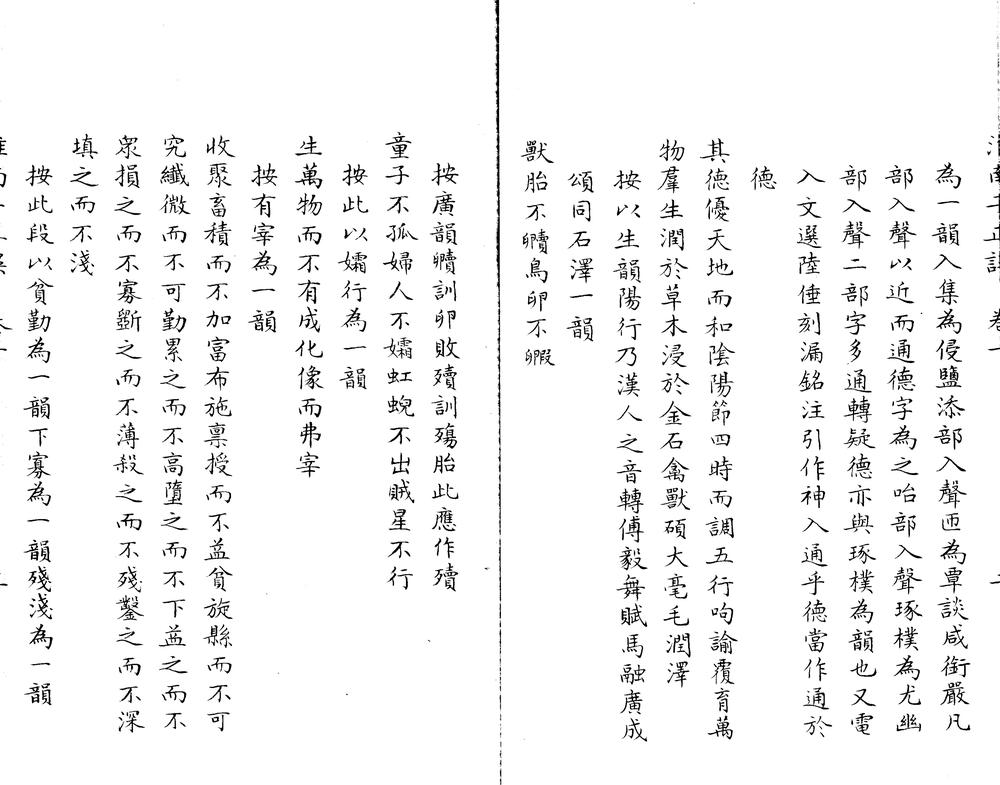 為一韻入集為侵鹽添部入聲帀為覃談咸銜嚴凡
部入聲以近而通德字為之咍部入聲琢樸為尤幽
部入聲二部字多通轉疑德亦與琢樸為韻也又電
入文選陸倕刻漏銘注引作神入通乎德當作通於
德
其德優天地而和陰陽節四時而調五行呴諭覆育萬
物羣生潤於草木浸於金石禽獸碩大毫毛潤澤
按以生韻陽行乃漢人之音轉傅毅舞賦馬融廣成
頌同石澤一韻
獸胎不䐁鳥卵不毈
按廣韻䐁訓卵敗殰訓殤胎此應作殰
童子不孤婦人不孀虹蜺不出賊星不行
按此以孀行為一韻
生萬物而不有成化像而弗宰
按有宰為一韻
收聚畜積而不加富布施禀授而不益貧旋縣而不可
究纖微而不可勤累之而不高墮之而不下益之而不
眾損之而不寡斲之而不薄殺之而不殘鑿之而不深
填之而不淺
按此段以貧勤為一韻下寡為一韻殘淺為一韻